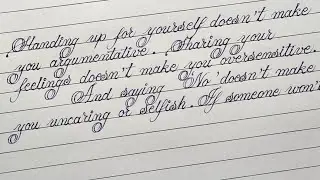 Standing up for yourself doesn't make
you argumentative. Sharing your
feelings doesn't make you oversensitive.
And saying 'No' doesn't make
you uncaring or selfish. If someone won't